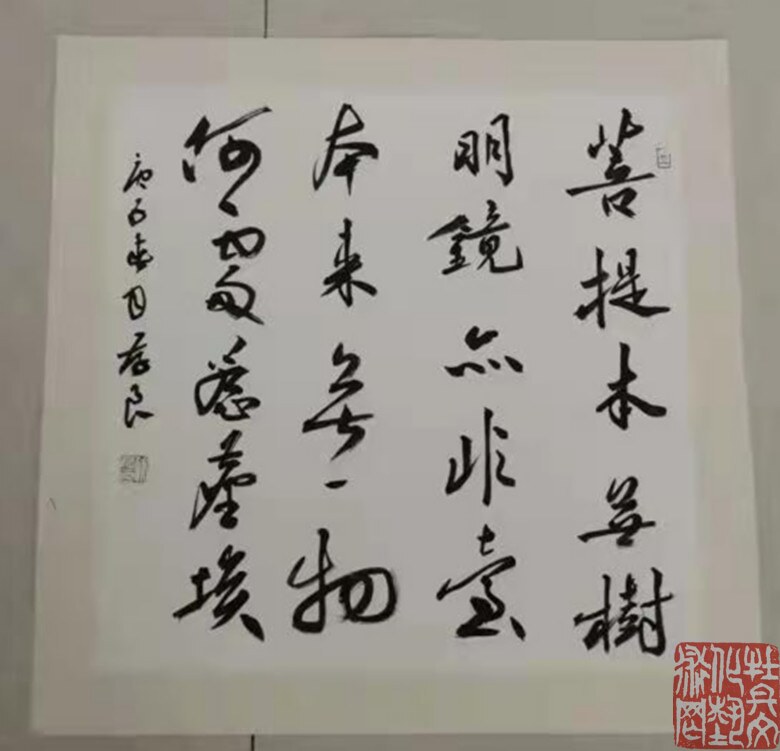 菩提本無樹
明鏡亦非臺
本來無一物
何處惹塵埃
庚子春月